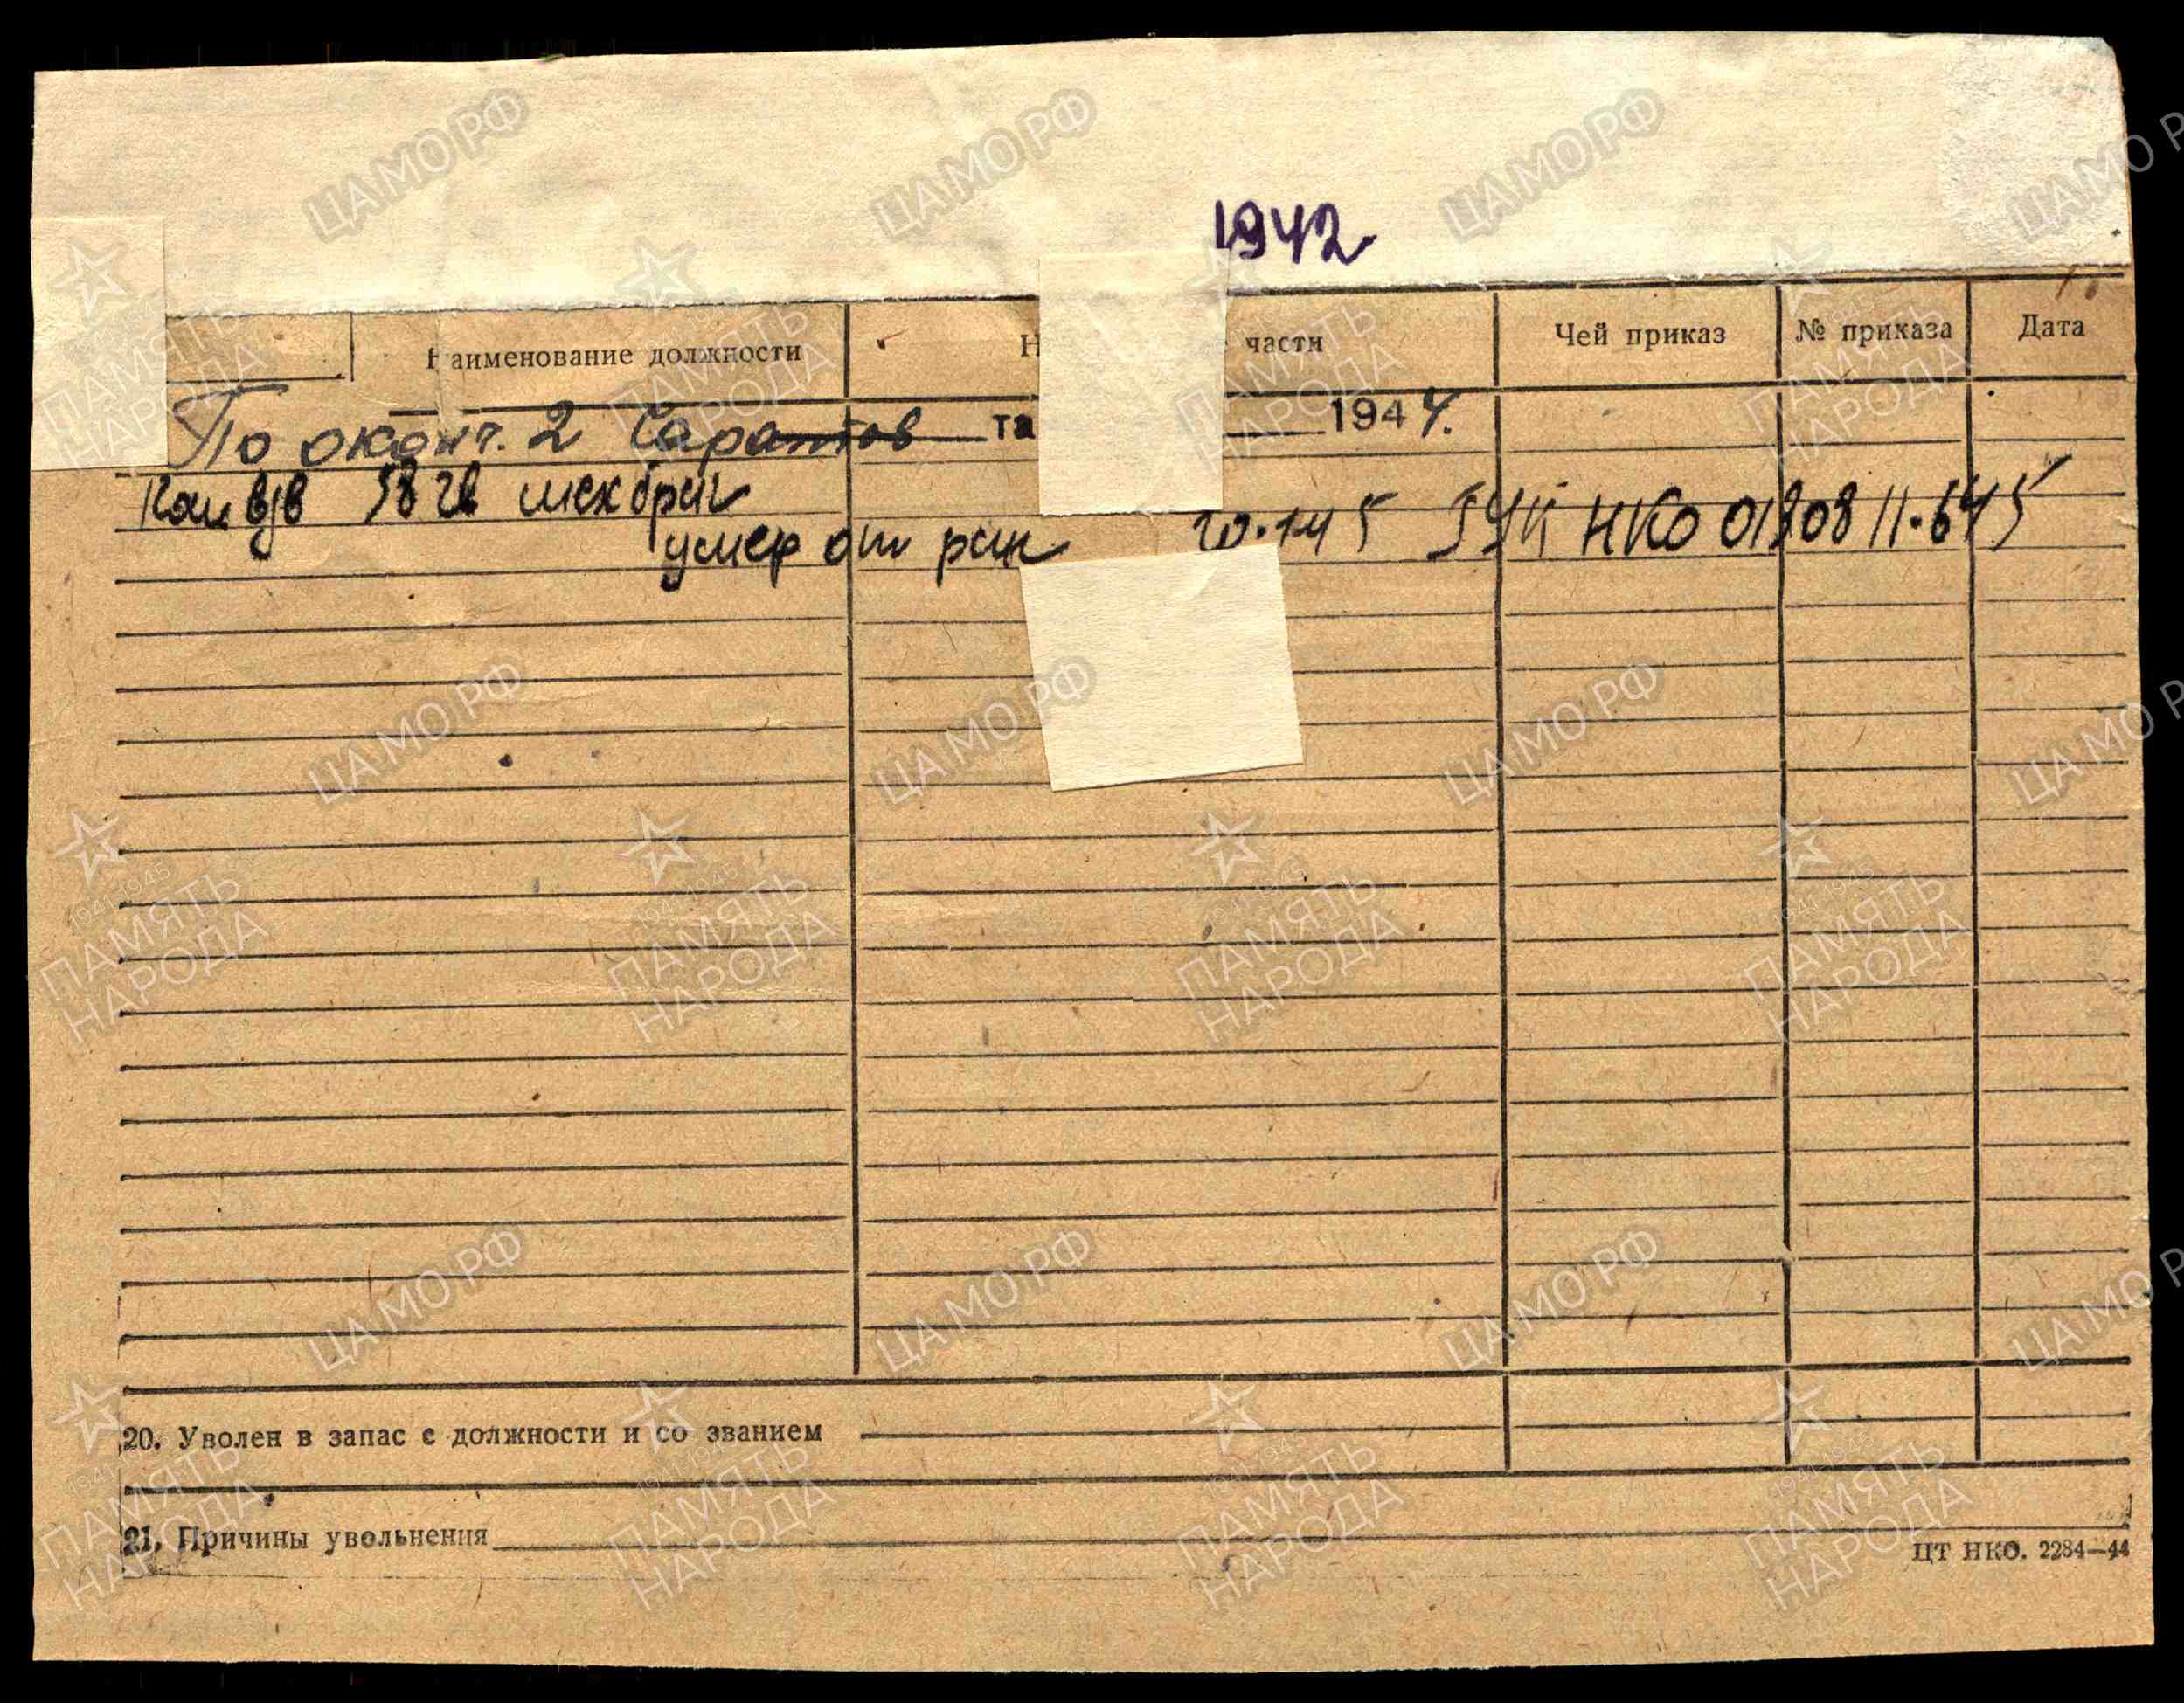 1942
аименование должности Н части Чей приказ № приказа Дата
По оконч. 2 Саратов та 1944.
Ком взв 58 гв мех бриг
умер от ран 20.1.45 ГУК НКО 01908 11.6.45
20. Уволен в запас с должности и со званием
21. Причины увольнения
ЦТ НКО. 2284—44
ЦАМО РФ
1941-1945
ПАМЯТЬ
НАРОДА